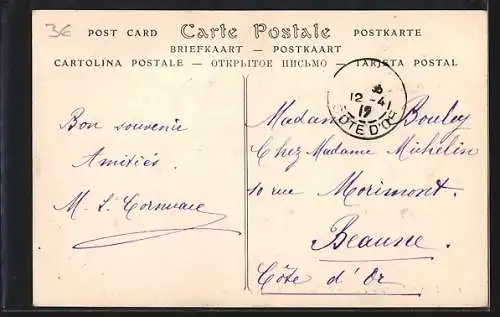 3€
POST CARD Carte Postale POSTKARTE
BRIEFKAART — POSTKAART
CARTOLINA POSTALE — ОТКРЫТОЕ ПИСЬМО — TARJETA POSTAL
12 - 41
17
CÔTE D'OR
Bon souvenir
Amitiés.
M. L. Cornuace
Madame Bouley
Chez Madame Michelin
10 rue Morimont.
Beaune.
Côte d'Or